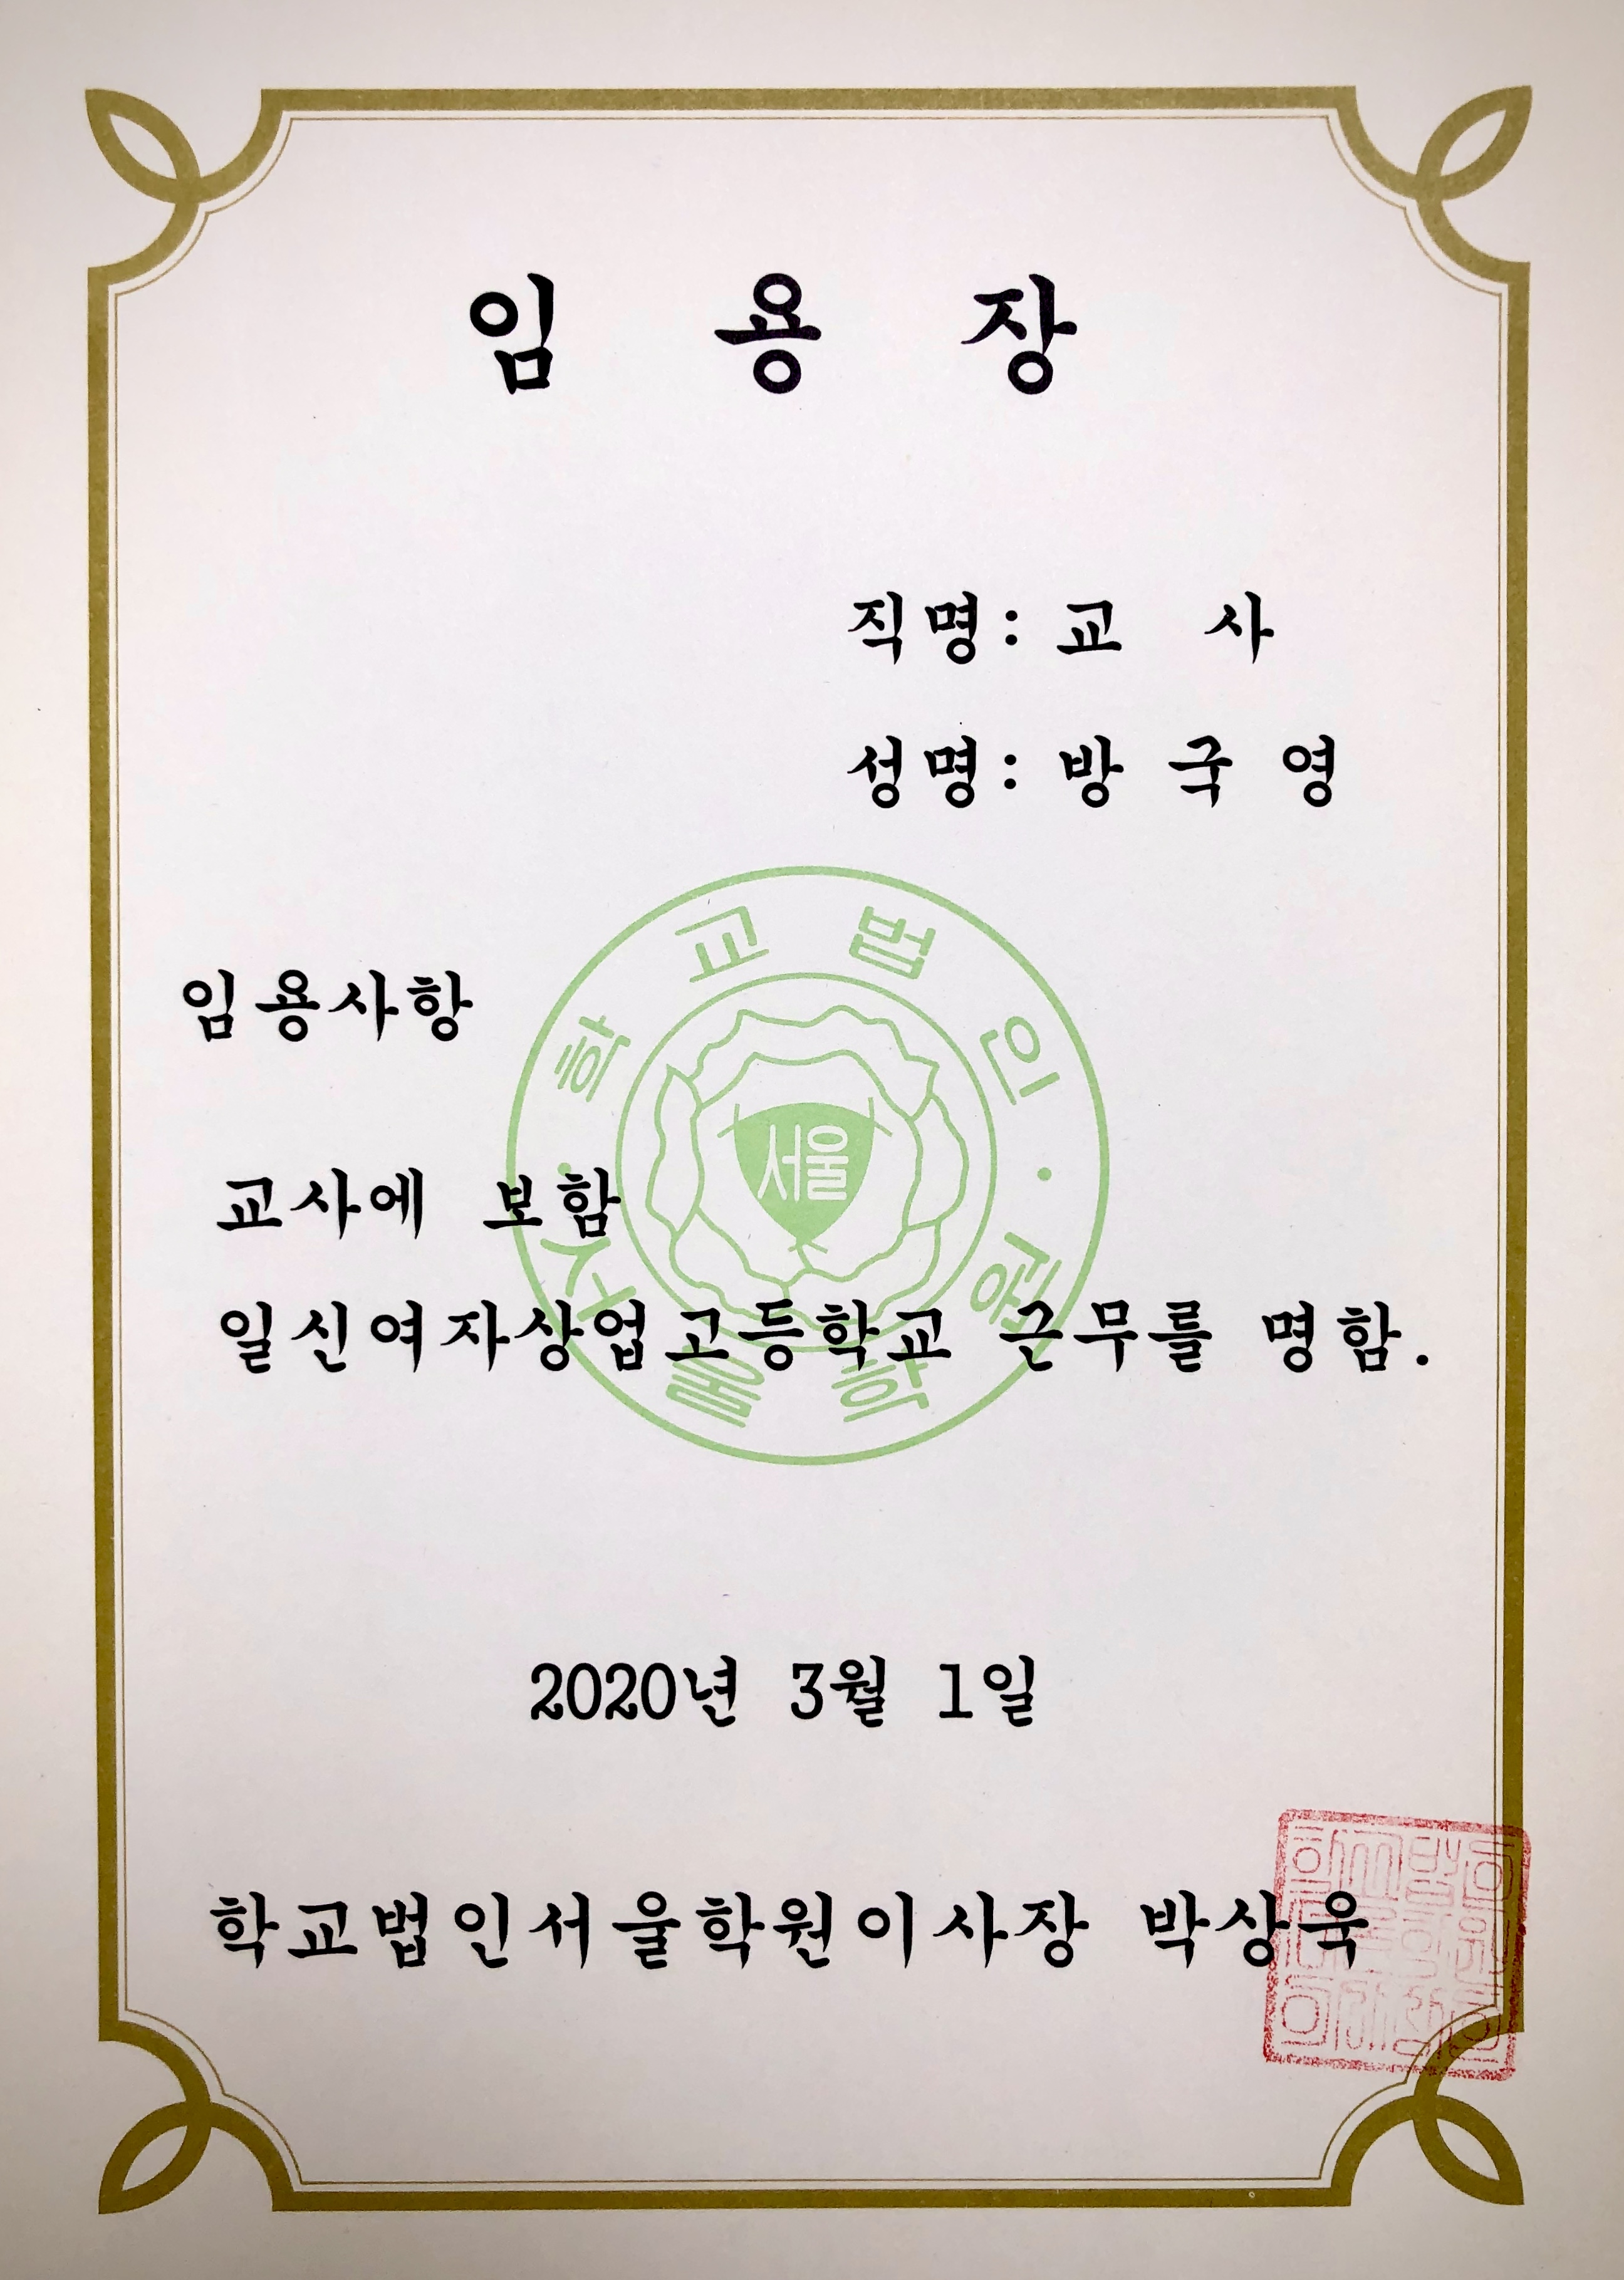 임 용 장
직명: 교 사
성명: 방 국 영
학교법인 · 서울학원 ·
서울
임용사항
교사에 보함
일신여자상업고등학교 근무를 명함.
2020년 3월 1일
학교법인서울학원이사장 박상욱